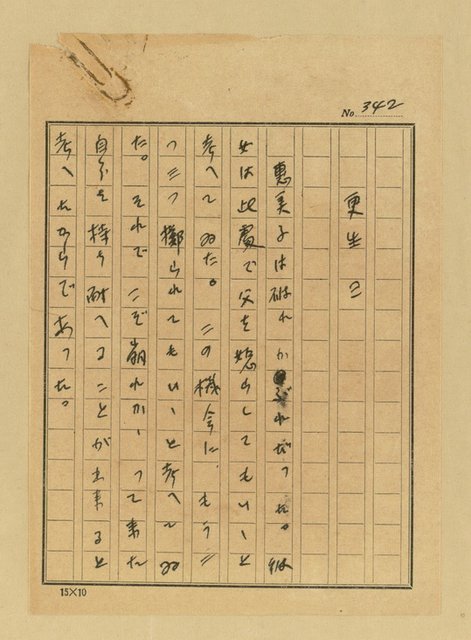 No. 342
更生 三
惠美子は破れかぶれだつた。彼
女は此處で父を怒らしてもいゝと
考へてゐた。この機会に、もう二
つ三つ擲られてもいゝと考へてゐ
た。それでこそ崩れかゝつて来た
自分を持ち耐へることが出来ると
考へたからであつた。
15×10